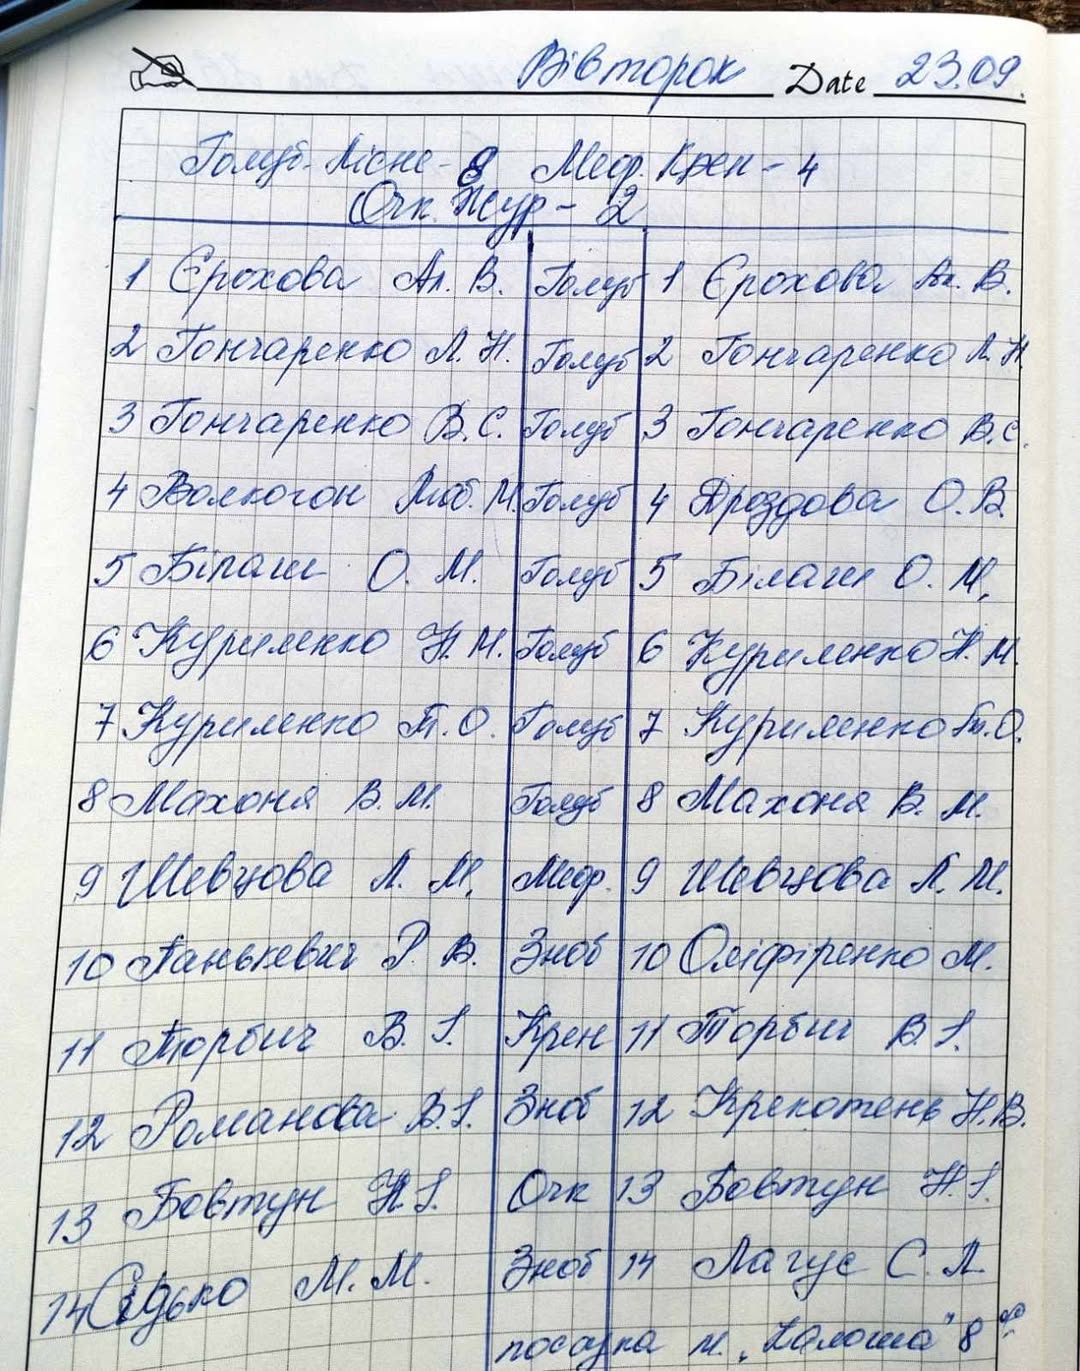 Вівторок Date 23.09.
Голуб-Лісне-8 Меф. Крен-4
Очк. Жур-2
1 Єрохова Ал. В. Голуб 1 Єрохова Ал. В.
2 Гончаренко Л. Н. Голуб 2 Гончаренко Л. Н.
3 Гончаренко В.С. Голуб 3 Гончаренко В.С.
4 Волкогон Люб. М. Голуб 4 Дроздова О.В.
5 Білаш О. М. Голуб 5 Білаш О. М.
6 Куриленко Н. М. Голуб 6 Куриленко Н. М.
7 Куриленко Т. О. Голуб 7 Куриленко Т. О.
8 Махоня В. М. Голуб 8 Махоня В. М.
9 Шевцова Л. М. Меф. 9 Шевцова Л. М.
10 Ганькевич Р. В. Зноб 10 Оліфіренко М.
11 Торбич В. І. Крен 11 Торбич В. І.
12 Романова В. І. Зноб 12 Крекотень Н.В.
13 Бовтун Н. І. Очк 13 Бовтун Н. І.
14 Сідько М. М. Зноб 14 Лагус С. Л.
посадка м. „Калоша" 8⁰⁰